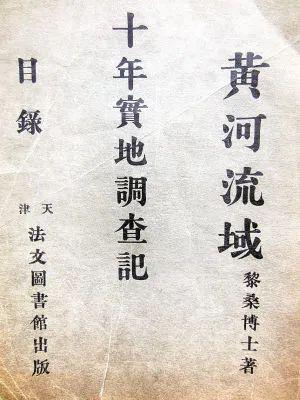 黄河流域
黎桑博士著
十年實地調查記
目錄
天津
法文圖書館出版